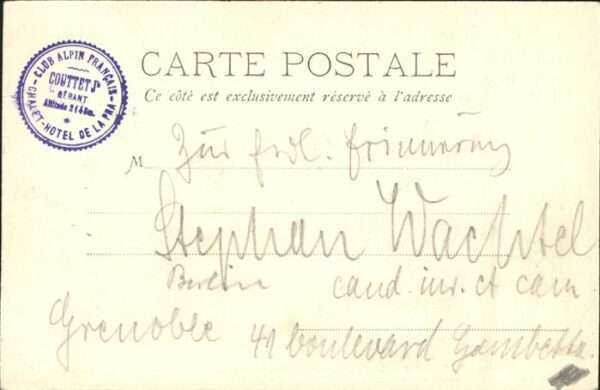 CLUB ALPIN FRANÇAIS
COUTTET Jˢ
GÉRANT
CHALET-HOTEL DE LA PRA
CARTE POSTALE
Ce côté est exclusivement réservé à l'adresse
M Zur frdl. Erinnerung
Stephan Wachtel
Berlin cand. iur. et cam
Grenoble 41 boulevard Gambetta.